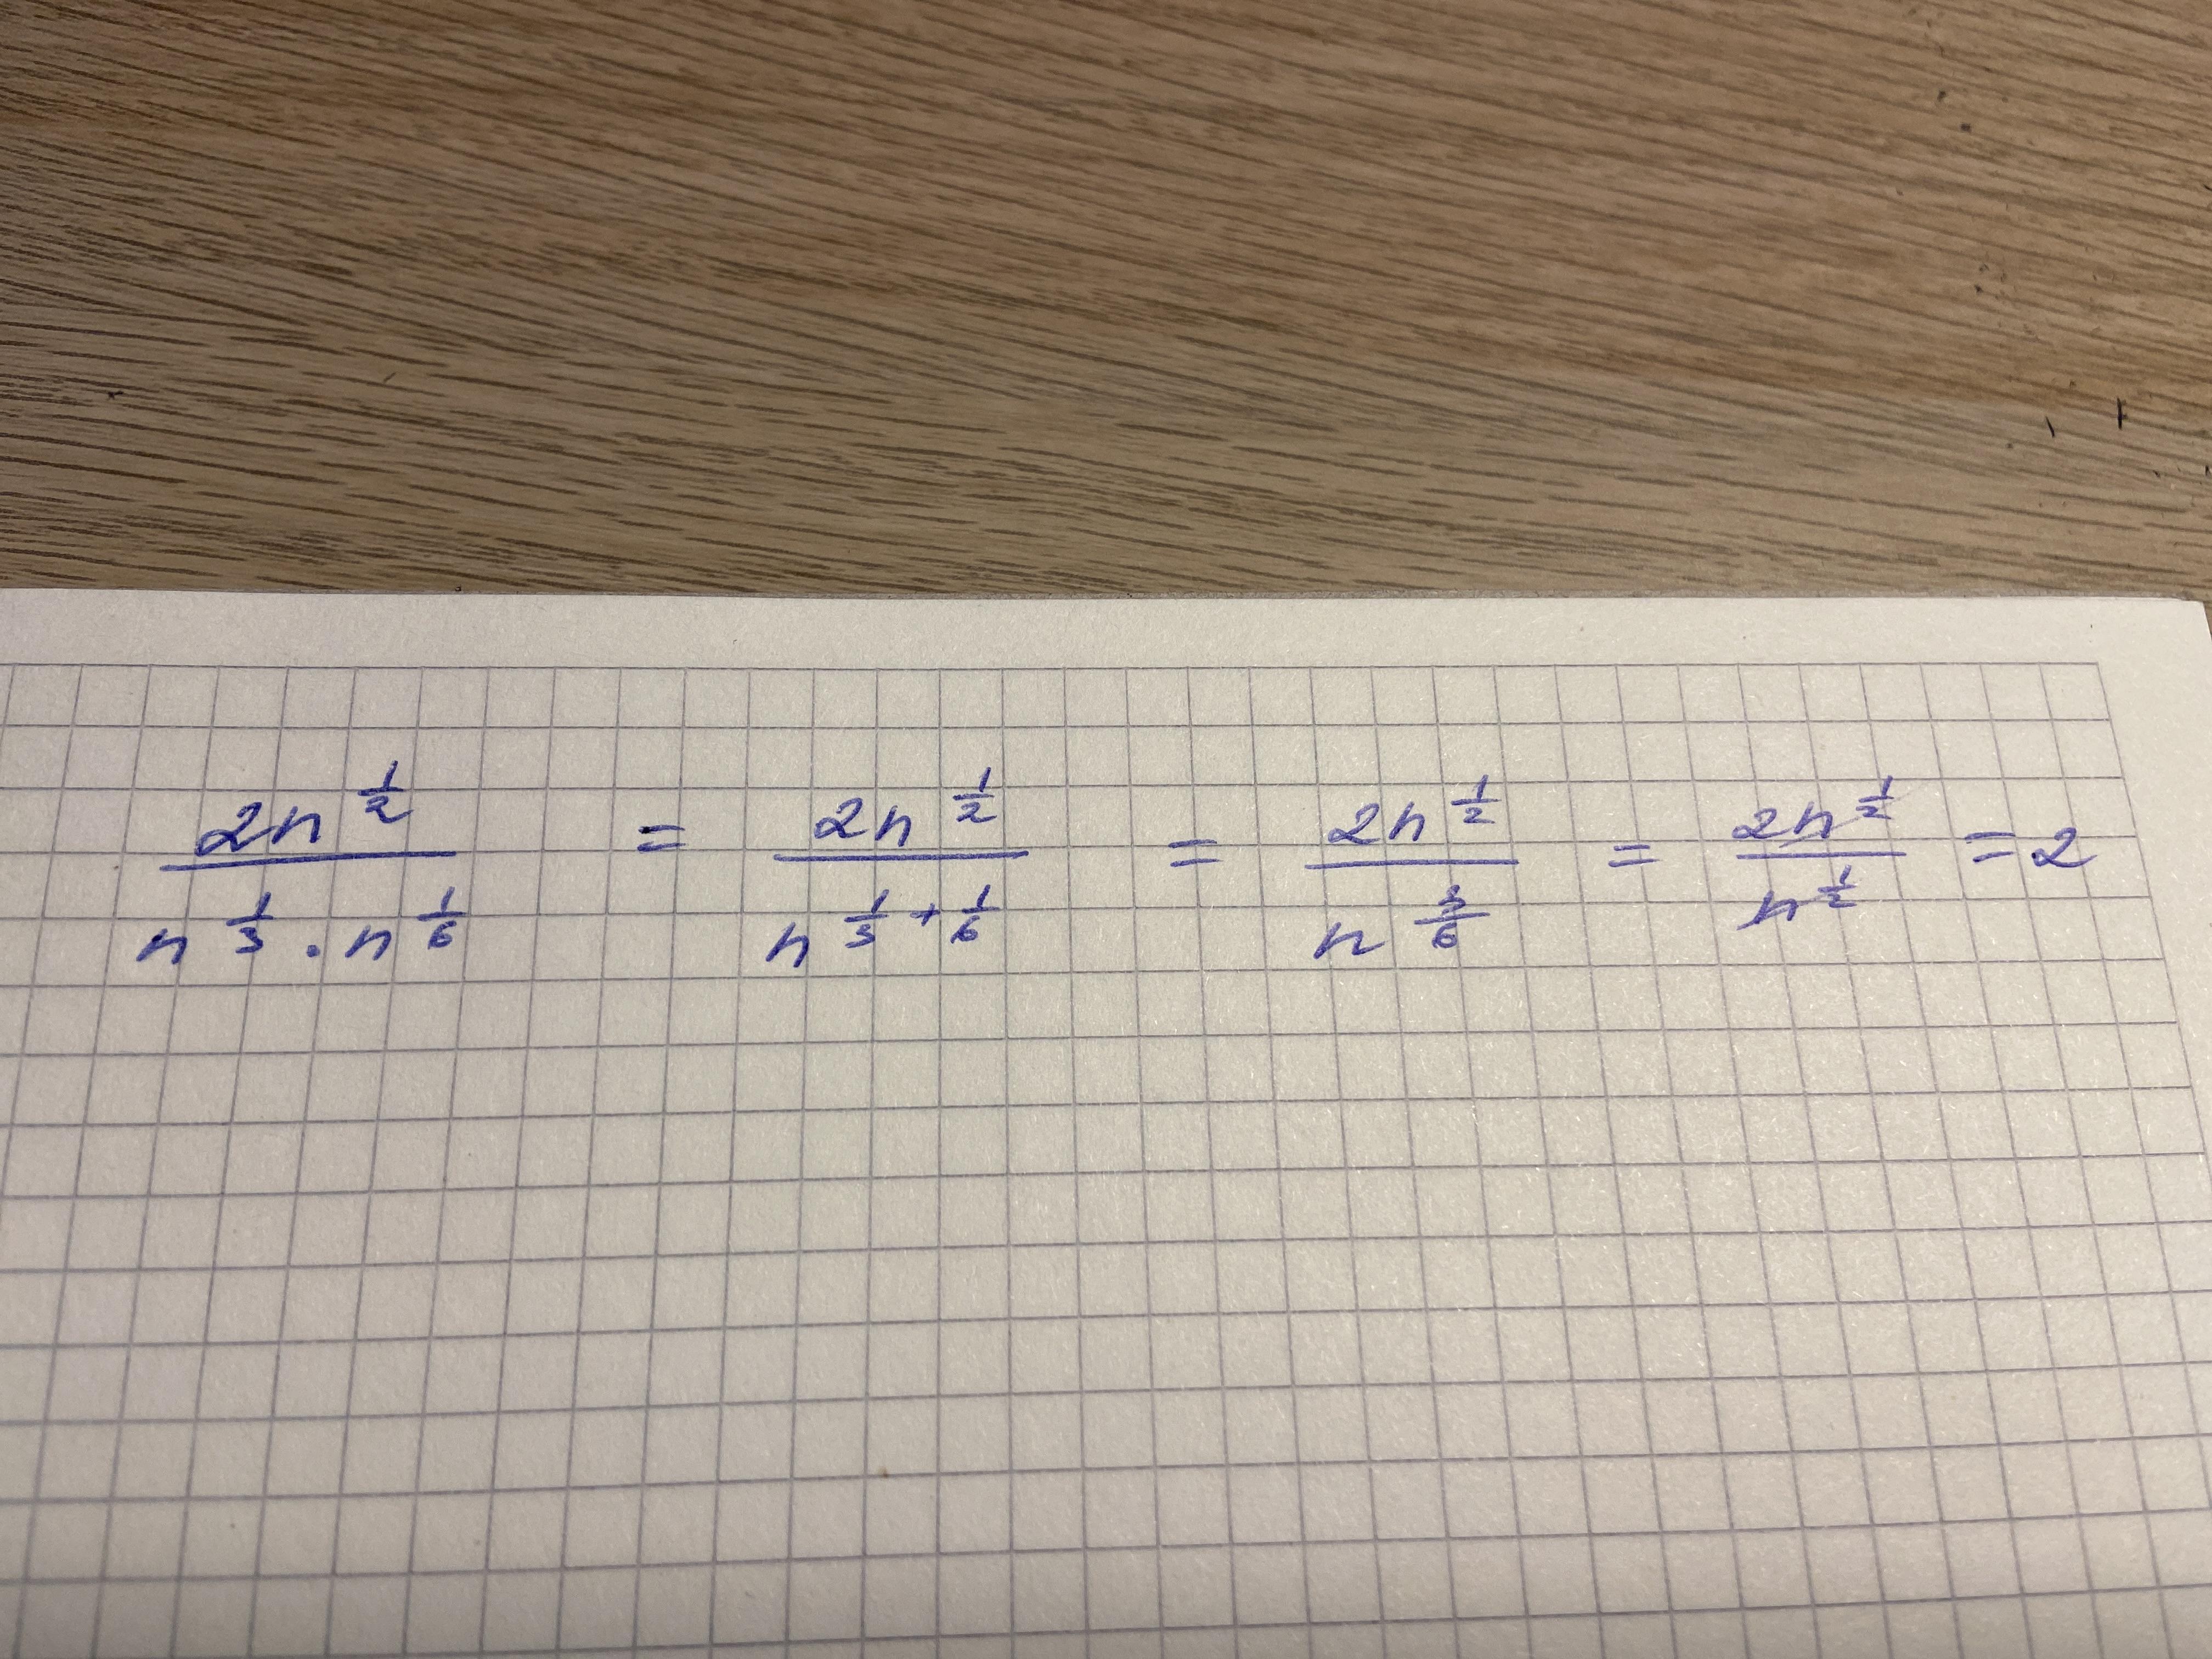 \frac{2n^{\frac{1}{2}}}{n^{\frac{1}{3}} \cdot n^{\frac{1}{6}}} = \frac{2n^{\frac{1}{2}}}{n^{\frac{1}{3}+\frac{1}{6}}} = \frac{2n^{\frac{1}{2}}}{n^{\frac{3}{6}}} = \frac{2n^{\frac{1}{2}}}{n^{\frac{1}{2}}} = 2